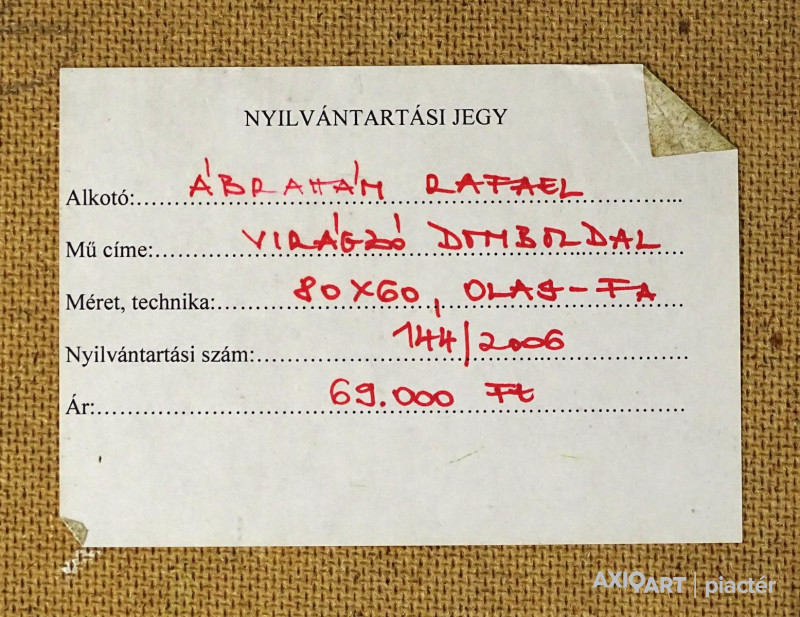 NYILVÁNTARTÁSI JEGY
Alkotó:..... ÁBRAHÁM RAFAEL
Mű címe:..... VIRÁGZÓ DOMBOLDAL
Méret, technika:..... 80X60, OLAJ-FA
Nyilvántartási szám:..... 144/2006
Ár:..... 69.000 Ft
AXIOART | piactér